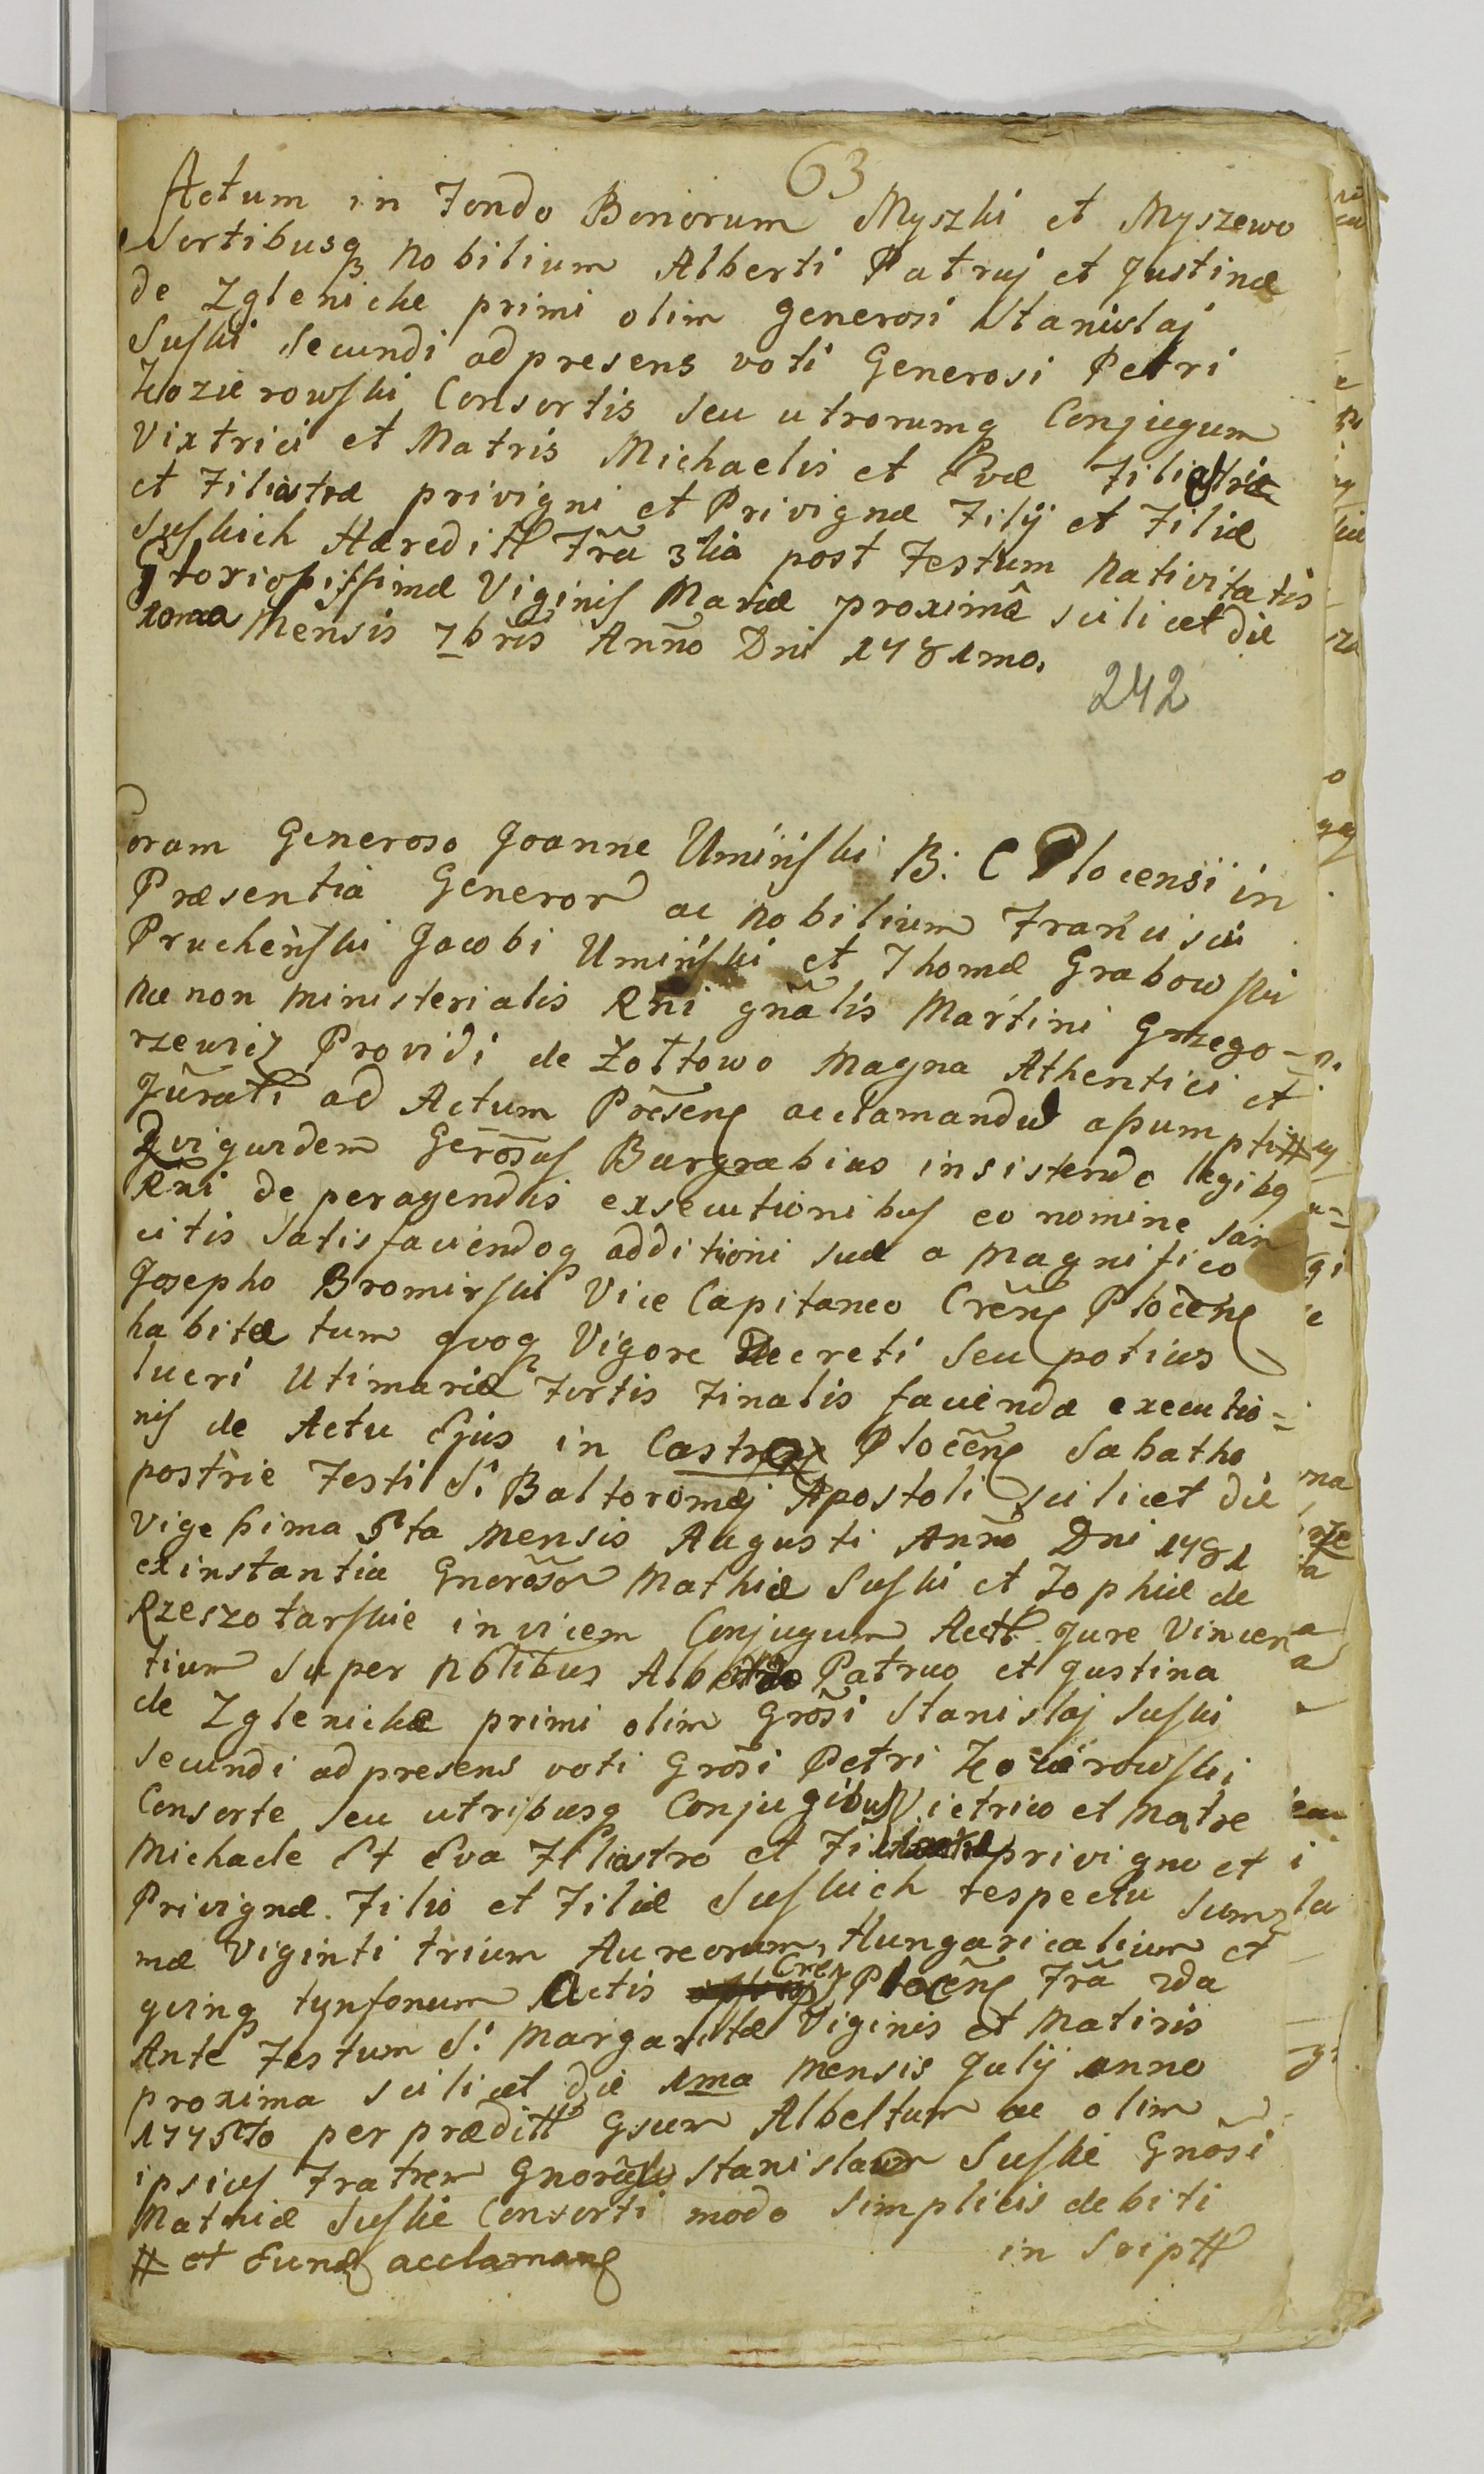 63
Actum in Fondo Bonorum Myszki et Myszewo
Sortibusq Nobilium Alberti Patruj et Justinæ
de Zglenicke primi olim Generosi Stanislaj
Suski Secundi ad presens voti Generosi Petri
Kozierowski Consortis Seu utrorumq Conjugum
Vixtrici et Matris Michaelis et Evæ Filiastri
et Filiastræ privigni et Privignæ Filij et Filiæ
Suskich Hæreditt Fra 3tia post Festum Nativitatis
Gloriosissimæ Viginis Mariæ proximâ scilicet die
10ma Mensis 7bris Anno Dni 1781mo.
242
Coram Generoso Joanne Uminski B: C Plocensi in
Præsentia Generor ac Nobilium Francisci
Pruchenski Jacobi Uminski et Thomæ Grabowski
Nec non Ministerialis Rni gnâlis Martini Grzego-
rzewicz Providi de Zoltowo Magna Athentici et
Jurati ad Actum Præsens acclamandu apum ptitt #
Qvi quidem Gerosus Burgrabius insistendo legibq
Rni de peragendis exsecutionibus eo nomine san
citis Satisfaciendoq additioni suæ a Magnifico
Josepho Bromirski Vice Capitaneo Crens Plocens
habitæ tum qvoq Vigore Decreti Seu potius
lucri Utimariæ Fortis Finalis facienda executio=
nis de Actu Ejus in Castrens Plocens Sabatho
postrie Festi S. Baltoromej Apostoli scilicet die
Vigesima 5ta Mensis Augusti Anno Dni 1781
ex instantia Gnerosor Mathiæ Suski et Zophiæ de
Rzeszotarskie invicem Conjugum Actt Jure Vincen
tium Super Nbilibus Alberto Patruo et Justina
de Zglenickæ primi olim Grosi Stanislaj Suski
Secundi ad presens voti Grosi Petri Kozierowski
Consorte Seu utribusq Conjugibus Victrico et Matre
Michaele Et Eva Filiastro et privigno et
Privignæ Filio et Filiæ Suskich respectu Sum
mæ Viginti trium Aureorum Hungaricalium et
quinq tynfonum Actis Crens Plocens Fra 2da
Ante Festum S. Margaritæ Viginis et Matiris
proxima scilicet die 1ma Mensis Julij anno
1775to per præditt Gsum Albeltum ac olim
ipsius Fratrem Gnorosu Stanislaum Suskie Gnosi
Mathiæ Suskie Consorti modo Simplicis debiti
# et Eund acclamans
in Sriptt